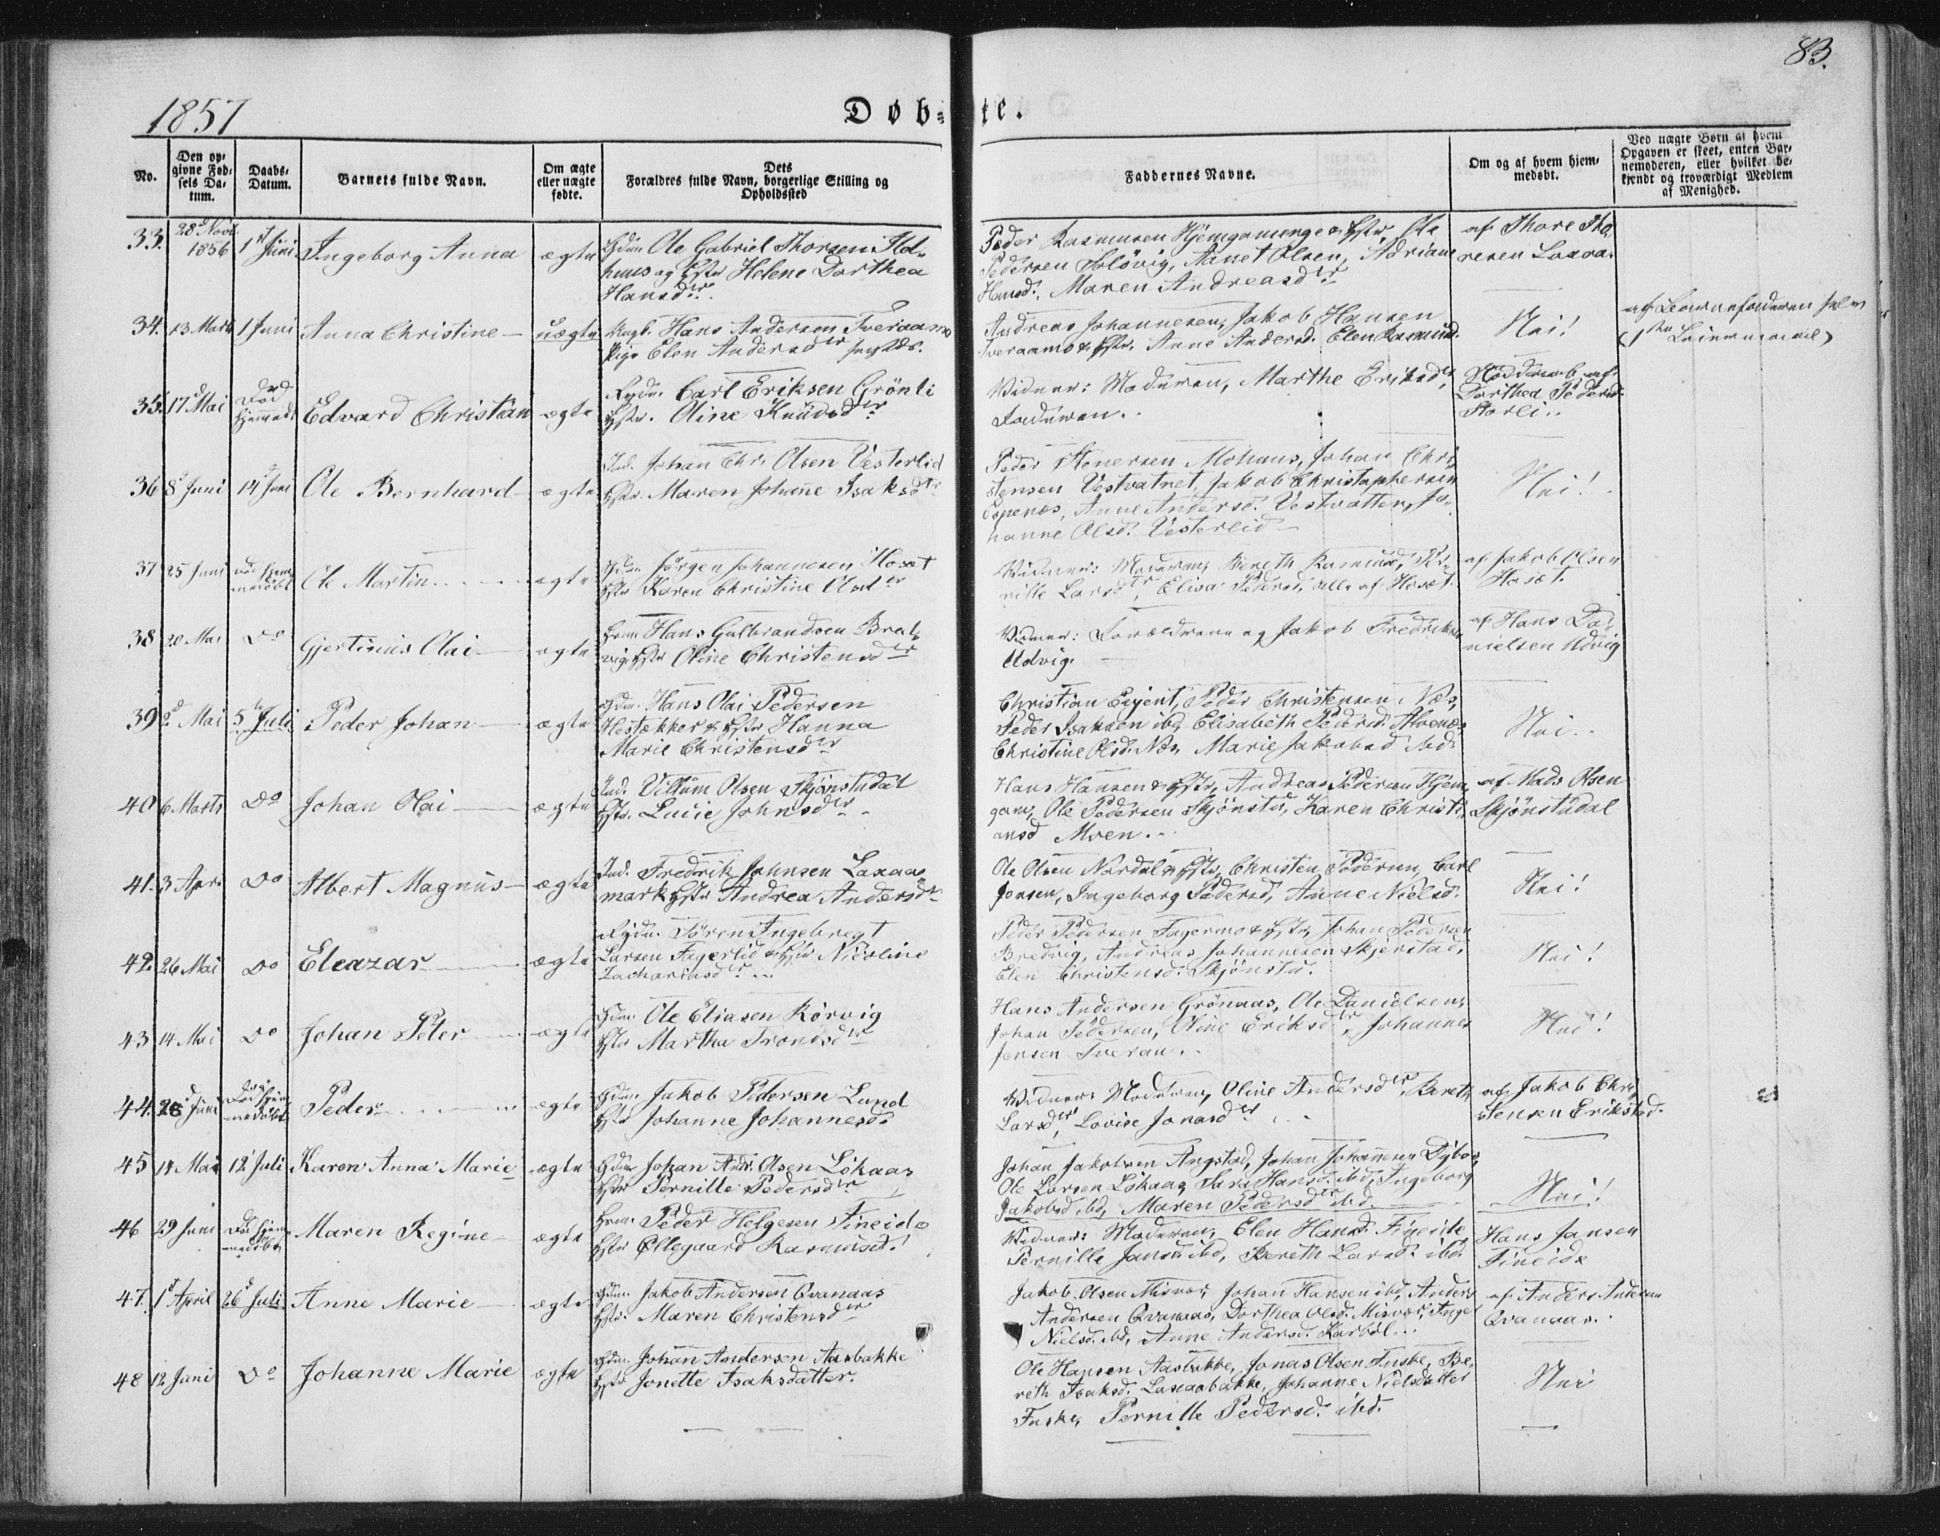 83.
1857
Døb-
te.
No.
Den op-
givne Fød-
sels Da-
tum.
Daabs-
Datum.
Barnets fulde Navn.
Om ægte
eller uægte
fødte.
Dets
Forældres fulde Navn, borgerlige Stilling og
Opholdssted
Faddernes Navne.
Om og af hvem hjem-
medøbt.
Ved uægte Børn at hvem
Opgaven er skeet, enten Bar-
nemoderen, eller hvilket be-
kjendt og troværdigt Medlem
af Menighed.
33. 28d Novbr 1856 1st Juni Ingeborg Anna ægte
Ole Gabriel Thorsen
og Hstr Helene Dorthea
Hansdtr.
Peder Rasmusen Hjemgamenge & Hstr Ole
Pedersen Soløvig, Olsen, Adriane
Hansd. Maren Andreasdtr
af Thore Tho-
resen
34. 13 Marts 1 Juni Anna Christine uægte
Ungk. Hans Andersen Tveraamo
Pige Elen Andersdtr
Andreas Johannesen, Jakob Hansen
Tveraamo & Hstr. Anne Andersd. Elen Rasmusd.
Nei!
35. 17d Mai Død Hjemmed. Edvard Christian ægte
Carl Eriksen Grönli
Hstr. Oline Knudsdtr
Vidner: Moderen, Marthe Eriksdtr,
Faderen.
Nøddøb af
Dorthea Pedersd.
Storli.
36 8d Juni 14 Juni Ole Bernhard ægte
Ind. Johan Chr. Olsen Vesterlid
Hstr. Maren Johanne Isaksdtr
Peder Stenersen Mohuus, Johan Chri-
stensen Vestvatnet, Jakob Christophersen
Espenes, Anne Andersd. Vestvatten, Jo-
hanne Olsd. Vesterlid
Nei!
37 25 Juni Død hjem-
medøbt Ole Martin ægte
Jørgen Johannesen Hoset
Hstr Karen Christine Olsdtr
Vidner: Moderen, Bereth Rasmusd, Per-
nille Larsdtr, Elisa Pedersd, alle af Hoset.
af Jakob Olsen
Hoset.
38 20 Mai Do Gjertinius Olai ægte
Hans Gulbrandsen Bred-
vig, Hstr Oline Christensdtr
Vidner: Forældrene og Jakob Fredriksen
Udvig.
af Hans Da-
nielsen Udvig
39 2d Mai 5te Juli Peder Johan ægte
Hans Olai Pedersen
& Hstr Hanna
Marie Christensdtr
Christian Peder Christensen Næs,
Peder Isaksen ibd, Elisabeth Pedersd.
Christine Olsd. Næs, Marie Jakobsd ibd
Nei.
40 6 Marts Do Johan Olai ægte
Ind. Villum Olsen Skjønstudal
Hstr. Lucie Johnsdtr
Hans Hansen & Hstr, Andreas Pedersen Hjem-
gam, Ole Pedersen Skjønstu, Karen Christi-
ansd Moen.
af Mads Olsen
Skjönstudal
41. 3 April Do Albert Magnus ægte
Ind. Fredrik Johnsen Laxaa-
mark Hstr Andrea Andersdtr
Ole Olsen Nordal & Hstr, Christen Pedersen, Carl
Jensen, Ingeborg Pedersd, Anne Nielsd.
Nei!
42. 26 Mai Do Eleazar ægte
Søren Ingebregt
Larsen Fagerlid & Hstr Nicoline
Zachariasdtr
Peder Pedersen Fagermo & Hstr, Johan Pedersen
Bredvig, Andreas Johannesen Skjerstad,
Elen Christensd. Skjönstu.
Nei!
43 14 Mai Do Johan Peter ægte
Ole Eliasen Körvig
Hstr Martha Trondsdtr
Hans Andersen Grönaas, Ole Danielsen,
Johan Pedersen, Oline Eriksdtr, Johannes
Jensen Tveraa.
Nei!
44. 28 Juni Død hjem-
medøbt Peder ægte
Jakob Pedersen Lund
Hstr Johanne Johannesd.
Vidner: Moderen, Oline Andersdtr, Bereth
Larsdtr, Lovise Jonasdtr
af Jakob Chri-
stensen Erikstad.
45 14 Mai 12 Juli Karen Anna Marie ægte
Johan Andr. Olsen Lökaas
Hstr Pernille Pedersdtr
Johan Jakobsen Angstad, Johan Johannesen
Ole Larsen Lökaas, Sara Hansd. ibd, Ingeborg
Jakobsd ibd, Maren Pedersdtr ibd.
Nei!
46 29 Juni Død hjem-
medøbt Maren Regine ægte
Peder Helgesen Fineide
Hstr Ollegaard Rasmusd.
Vidner: Moderen, Elen Hansd. Fineide,
Pernille Jansd ibd, Bereth Larsd. ibd
Hans Jansen
Fineide
47. 1d April 26d Juli Anne Marie ægte
Jakob Andersen Qvanaas
Hstr. Maren Christensdtr
Jakob Olsen Misvær, Johan Hansen ibd, Anders
Andersen Qvanaas, Dorthea Olsd. Misvær, Inger
Nielsd. ibd, Anne Andersd. Karbøl.
af Anders Andersen
Qvanaas.
48 12 Juni Do Johanne Marie ægte
Johan Andersen Aasbakke
Hstr Jonette Isaksdatter.
Ole Hansen Aasbakke, Jonas Olsen Fuske, Be-
reth Isaksd. Laxaabakke, Johanne Nielsdatter
Fuske, Pernille Pedersd. ibd.
Nei